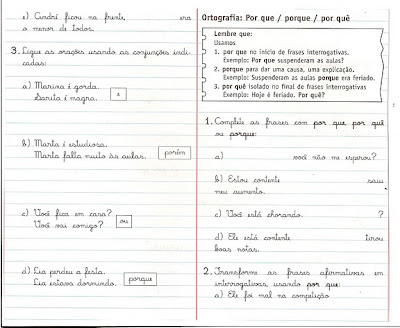 c) André ficou na frente, era
o menor de todos.
3. Ligue as orações usando as conjunções indi-
cadas:
a) Marina é gorda.
Sarita é magra.
e
b) Marta é estudiosa.
Marta falta muito às aulas.
porém
c) Você fica em casa?
Você vai comigo?
ou
d) Lia perdeu a festa.
Lia estava dormindo.
porque
Ortografia: Por que / porque / por quê
Lembre que:
Usamos
1. por que no início de frases interrogativas.
Exemplo: Por que suspenderam as aulas?
2. porque para dar uma causa, uma explicação.
Exemplo: Suspenderam as aulas porque era feriado.
3. por quê isolado no final de frases interrogativas
Exemplo: Hoje é feriado. Por quê?
1. Complete as frases com por que, por quê
ou porque:
a) você não me esperou?
b) Estou contente saiu
meu aumento.
c) Você está chorando. ?
d) Ele está contente tirou
boas notas.
2. Transforme as frases afirmativas em
interrogativas, usando por que:
a) Ele foi mal na competição